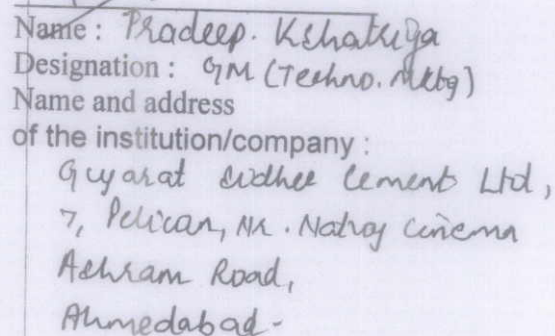 Name : Pradeep. Kshatriya
Designation : GM (Techno. Mktg)
Name and address
of the institution/company :
Gujarat Sidhee Cement Ltd,
7, Pelican, Nr. Natraj Cinema
Ashram Road,
Ahmedabad-